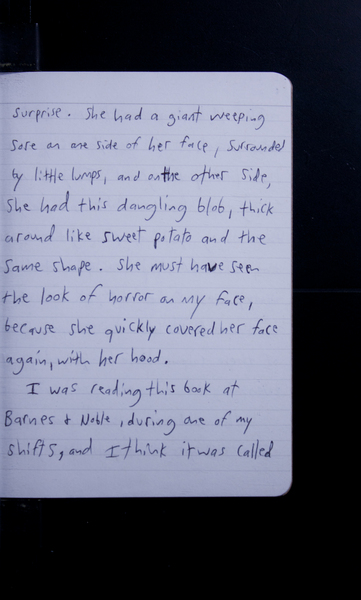 surprise. She had a giant weeping
sore on one side of her face, surrounded
by little lumps, and on the other side,
she had this dangling blob, thick
around like sweet potato and the
same shape. She must have seen
the look of horror on my face,
because she quickly covered her face
again, with her hood.
I was reading this book at
Barnes & Noble, during one of my
shifts, and I think it was called